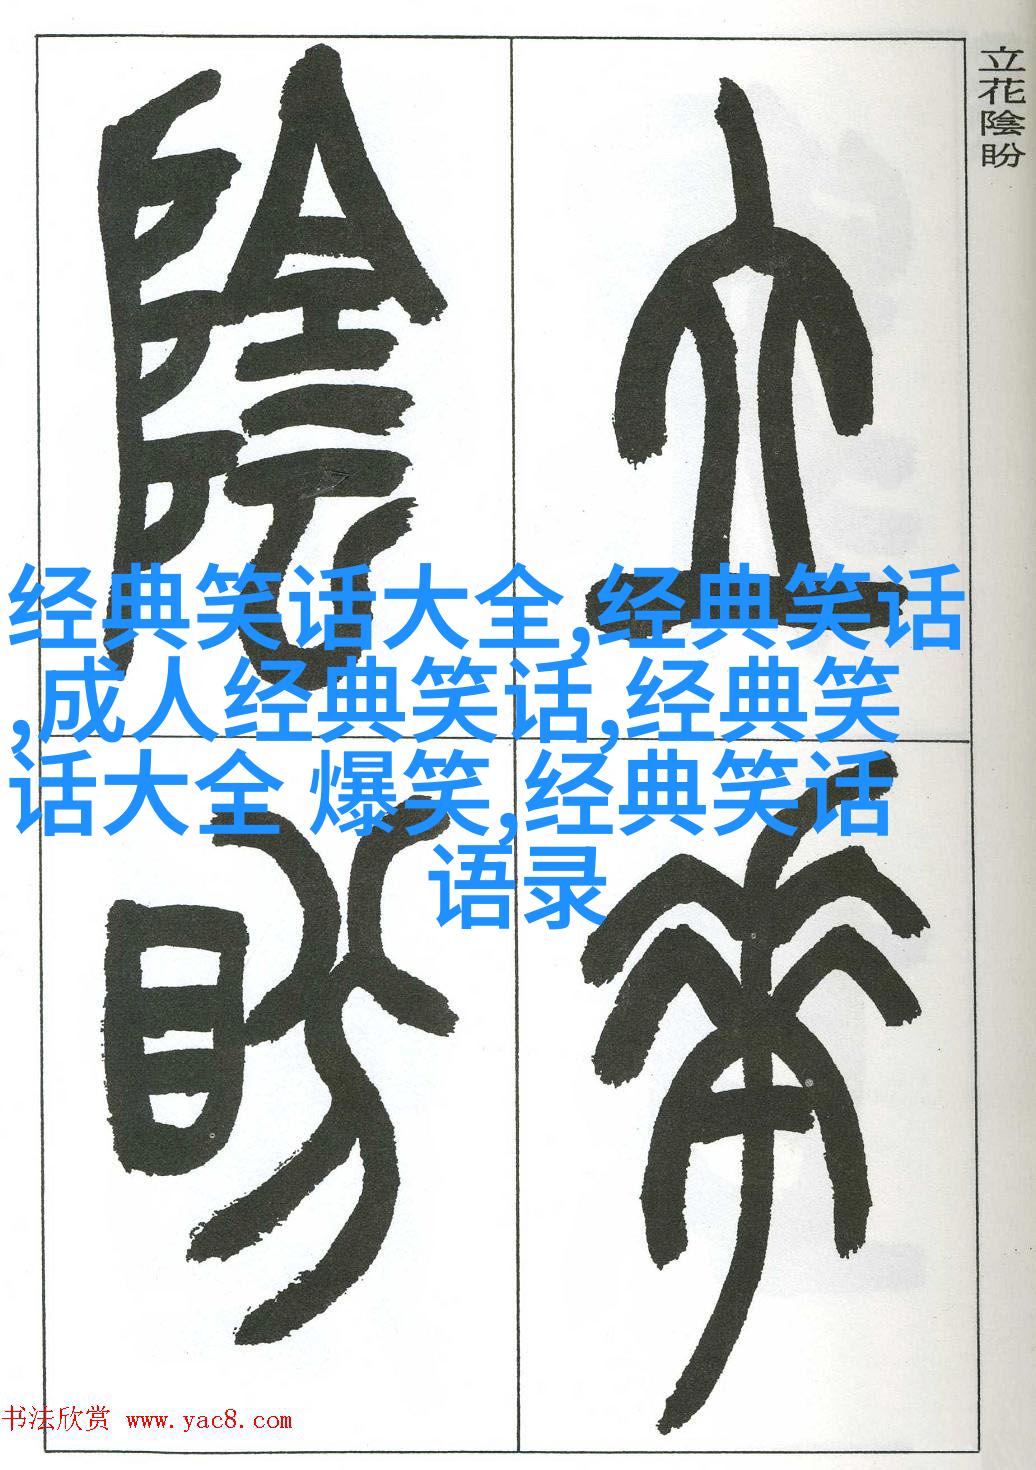 立花陰盼
立
花
陰
盼
经典笑话大全,经典笑话
,成人经典笑话,经典笑
话大全 爆笑,经典笑话
语录
书法欣赏 www.yac8.com